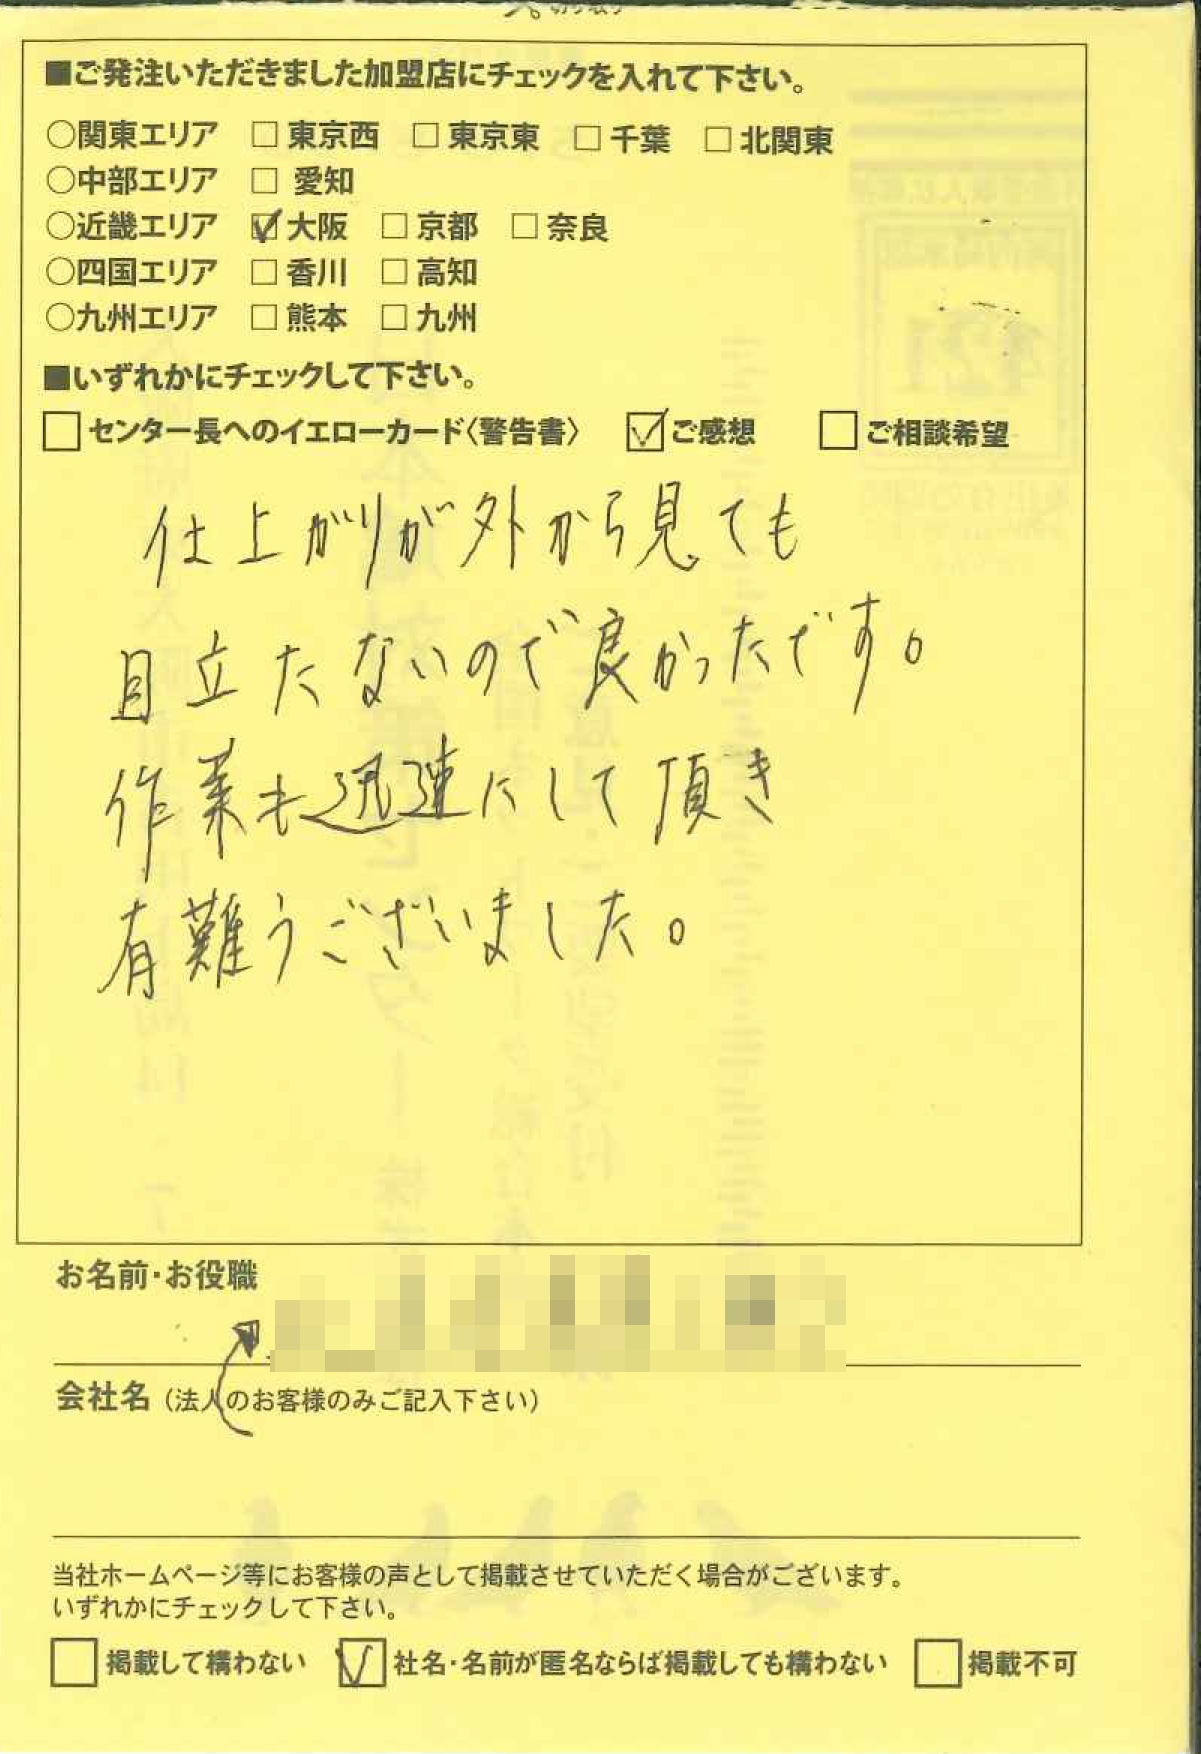 ■ご発注いただきました加盟店にチェックを入れて下さい。
○関東エリア □東京西 □東京東 □千葉 □北関東
○中部エリア □愛知
○近畿エリア ☑大阪 □京都 □奈良
○四国エリア □香川 □高知
○九州エリア □熊本 □九州
■いずれかにチェックして下さい。
□センター長へのイエローカード〈警告書〉 ☑ご感想 □ご相談希望
仕上がりが外から見ても
目立たないので良かったです。
作業も迅速にして頂き
有難うございました。
お名前・お役職
会社名（法人のお客様のみご記入下さい）
当社ホームページ等にお客様の声として掲載させていただく場合がございます。
いずれかにチェックして下さい。
□掲載して構わない ☑社名・名前が匿名ならば掲載しても構わない □掲載不可